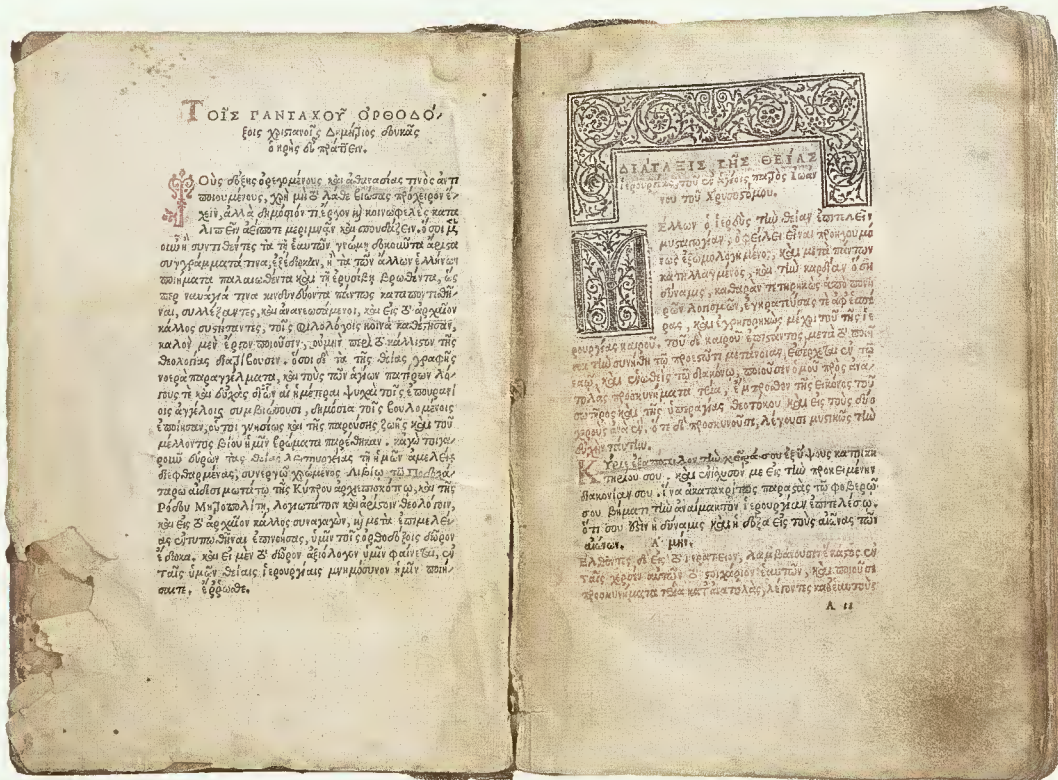 ΤΟΙ͂Σ ΠΑΝΤΑΧΟΥ͂ ὈΡΘΟΔΌ-
ξοις χριστιανοῖς Δημήτριος δουκᾶς
ὁ κρὴς εὖ πράττειν.
Τοὺς δόξης ὀρεγομένους καὶ ἀθανασίας τινὸς ἀντι
ποιουμένους, χρὴ μὴ τὸ λάθε βιώσας πρόχειρον ἔ-
χειν, ἀλλὰ δημόσιόν τι ἔργον καὶ κοινωφελὲς κατα
λιπεῖν ἀεί ποτε μεριμνᾶν καὶ σπουδάζειν, ὅσοι μὲν
συντιθέντες τὰ τῇ ἑαυτῶν γνώμῃ δοκοῦντα ἄριστα
συγγράμματά τινα, ἐξέδωκαν, ἢ τὰ τῶν ἄλλων ἑλλήνων
ποιήματα παλαιωθέντα καὶ τῇ ἐρυσίβῃ βρωθέντα, ὥς
περ ναυάγιά τινα κινδυνεύοντα πάντως καταποντισθῆ-
ναι, συλλέξαντες, καὶ ἀνανεωσάμενοι, καὶ εἰς τὸ ἀρχαῖον
κάλλος συστήσαντες, τοῖς φιλολόγοις κοινὰ κατέστησαν,
καλὸν μὲν ἔργον ποιοῦσιν, οὐ μὴν περὶ τὸ κάλλιστον τῆς
θεολογίας διατρίβουσιν. ὅσοι δὲ τὰ τῆς θείας γραφῆς
νοερὰ παραγγέλματα, καὶ τοὺς τῶν ἁγίων πατέρων λό-
γους τε καὶ εὐχὰς δι' ὧν αἱ ἡμέτεραι ψυχαὶ τοῖς ἐπουρανί
οις ἀγγέλοις συμβιώσουσι, δημόσια τοῖς βουλομένοις
ἐποίησαν, οὗτοι γνησίως καὶ τῆς παρούσης ζωῆς καὶ τοῦ
μέλλοντος βίου ἡμῖν ἐρώματα παρέθηκαν. κἀγὼ τοιγα-
ροῦν εὑρὼν τὰς θείας λειτουργίας τῇ ἡμῶν ἀμελείᾳ
διεφθαρμένας, συνεργῷ χρώμενος Λιβίῳ τῷ Ποδοχα
τάρῳ αἰδεσιμωτάτῳ τῆς Κύπρου ἀρχιεπισκόπῳ, καὶ τῆς
Ῥόδου Μητροπολίτῃ, λογιωτάτοιν καὶ ἀρίστοιν θεολόγοιν,
καὶ εἰς τὸ ἀρχαῖον κάλλος συναγαγὼν, καὶ μετὰ ἐπιμελεί-
ας ἐντυπωθῆναι ἐπινοήσας, ὑμῖν τοῖς ὀρθοδόξοις δῶρον
ἔδωκα. καὶ εἰ μὲν τὸ δῶρον ἀξιόλογον ὑμῖν φαίνεται, ἐν
ταῖς ὑμῶν θείαις ἱερουργίαις μνημόσυνον ἡμῖν ποιή-
σατε. ἔρρωσθε.
ΔΙΑΤΑΞΙΣ ΤΗΣ ΘΕΙΑΣ
ἱερουργίας τοῦ ἐν ἁγίοις πατρὸς Ἰωάν
νου τοῦ Χρυσοστόμου.
Μέλλων ὁ ἱερεὺς τὴν θείαν ἐπιτελεῖν
μυσταγωγίαν, ὀφείλει εἶναι προηγουμέ
νως ἐξωμολογημένος, καὶ μετὰ πάντων
κατηλλαγμένος, καὶ τὴν καρδίαν ὅση
δύναμις, καθαρὰν τετηρηκὼς ἀπὸ πονη
ρῶν λογισμῶν, ἐγκρατεύσας τε ἀφ' ἑσπέ
ρας, καὶ ἐγρηγορηκὼς μέχρι τοῦ τῆς ἱε
ρουργίας καιροῦ. τοῦ δὲ καιροῦ ἐπιστάντος, μετὰ τὸ ποιῆ
σαι τὴν συνήθη τῷ προεστῶτι μετάνοιαν, εἰσέρχεται ἐν τῷ
ναῷ, καὶ ἑνωθεὶς τῷ διακόνῳ, ποιοῦσιν ὁμοῦ πρὸς ἀνα-
τολὰς προσκυνήματα τρία, ἔμπροσθεν τῆς εἰκόνος τοῦ
σωτῆρος καὶ τῆς ὑπεραγίας θεοτόκου καὶ εἰς τοὺς δύο
χοροὺς ἀνὰ ἕν. ὅτε δὲ προσκυνοῦσι, λέγουσι μυστικῶς τὴν
εὐχὴν ταύτην.
Κύριε ἐξαπόστειλον τὴν χεῖρά σου ἐξ ὕψους κατοικη
τηρίου σου. καὶ ἐνίσχυσόν με εἰς τὴν προκειμένην
διακονίαν σου. ἵνα ἀκατακρίτως παραστὰς τῷ φοβερῷ
σου βήματι τὴν ἀναίμακτον ἱερουργίαν ἐπιτελέσω.
ὅτι σου ἐστὶν ἡ δύναμις καὶ ἡ δόξα εἰς τοὺς αἰῶνας τῶν
αἰώνων. Ἀμήν.
Ἐλθόντες δὲ εἰς τὸ ἱερατεῖον, λαμβάνουσιν ἕκαστος ἐν
ταῖς χερσὶν αὐτῶν τὸ στοιχάριον ἑαυτῶν, καὶ ποιοῦσι
προσκυνήματα τρία κατ' ἀνατολὰς, λέγοντες καθ' ἑαυτοὺς
Α ιι